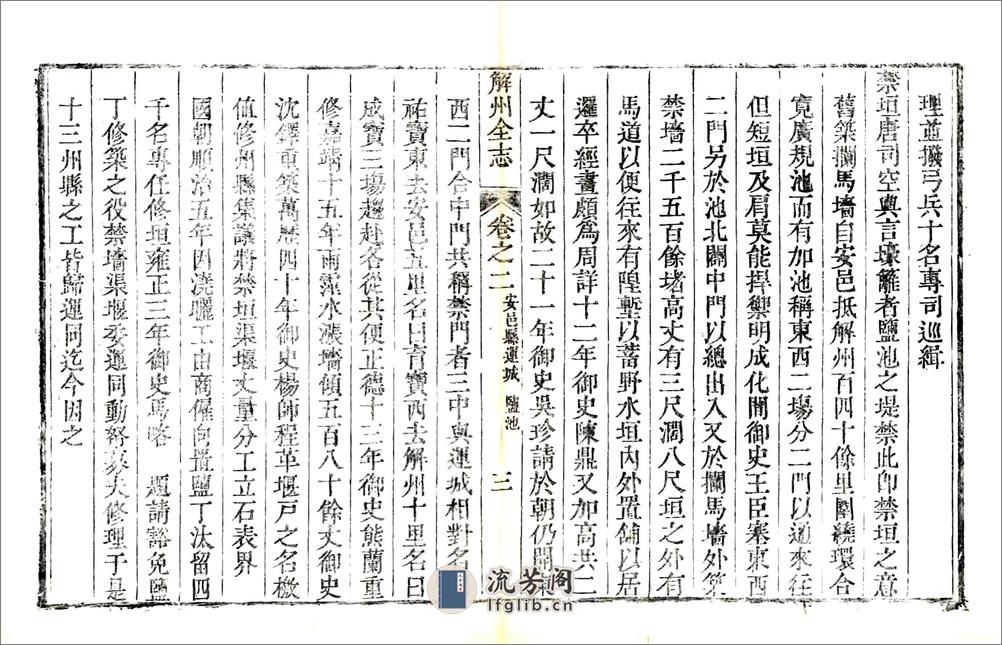 理並撥弓兵十名專司巡緝
禁垣唐司空輿言壕籬者鹽池之堤禁此卽禁垣之意
舊築攔馬墻自安邑抵解州百四十餘里圍繞環合
寬廣規池而有加池稱東西二場分二門以通來往
但短垣及肩莫能捍禦明成化間御史王臣塞東西
二門另於池北闢中門以總出入又於攔馬墻外築
禁墻二千五百餘堵高丈有三尺濶八尺垣之外有
馬道以便往來有隍塹以蓄野水垣內外置舖以居
邏卒經畫頗爲周詳十二年御史陳鼎又加高共二
丈一尺濶如故二十一年御史吳珍請於朝仍開東
解州全志
卷之二
安邑縣運城
鹽池
三
西二門合中門共稱禁門者三中與運城相對名曰
祐寶東去安邑五里名曰育寶西去解州十里名曰
成寶三場趨赴各從其便正德十三年御史熊蘭重
修嘉靖十五年雨霪水漲墻傾五百八十餘丈御史
沈鐸重築萬歷四十年御史楊師程革堰戶之名檄
值修州縣集議將禁垣渠堰丈量分工立石表界
國朝順治五年因澆曬工由商僱向置鹽丁汰留四
千名專任修垣雍正三年御史馬喀 題請豁免鹽
丁修築之役禁墻渠堰委運同動帑募夫修理于是
十三州縣之工皆歸運同迄今因之
流芳阁
lfglib.cn